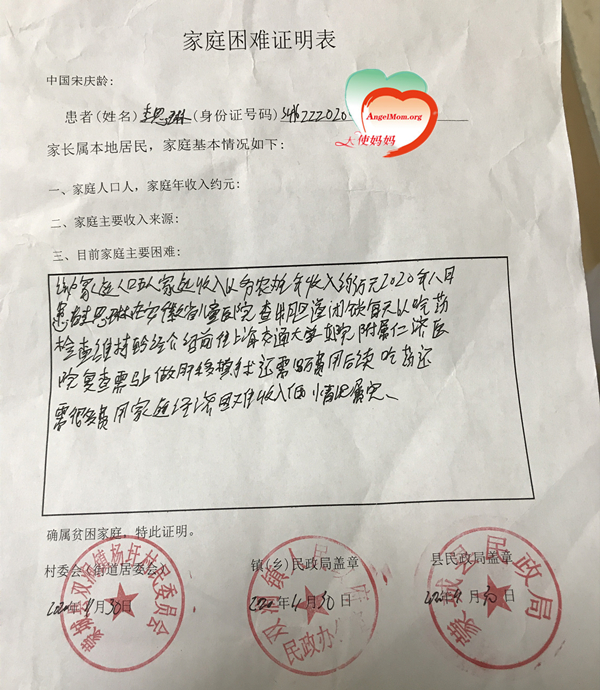 家庭困难证明表
中国宋庆龄:
患者(姓名) 思琳 (身份证号码) 222020
AngelMom.org
天使妈妈
家长属本地居民，家庭基本情况如下:
一、家庭人口人，家庭年收入约元:
二、家庭主要收入来源:
三、目前家庭主要困难:
家庭人口 人家庭收入以务农 年收入约 万元2020年八月
患者 思琳在安徽省儿童医院查出胆道闭锁每天以吃药
检查维持 经介绍前往上海交通大学医院附属仁济医
院复查需马上做肝移植手术还需 万费用后续吃药还
需很多费用家庭经济困难收入低情况属实、
确属贫困家庭，特此证明。
村委会(街道居委会) 镇(乡)民政局盖章 县民政局盖章
年 月30日 年4月30日 年 月30日
双涧镇杨圩村民委员会
双涧镇人民 民政办
蒙城 民政局